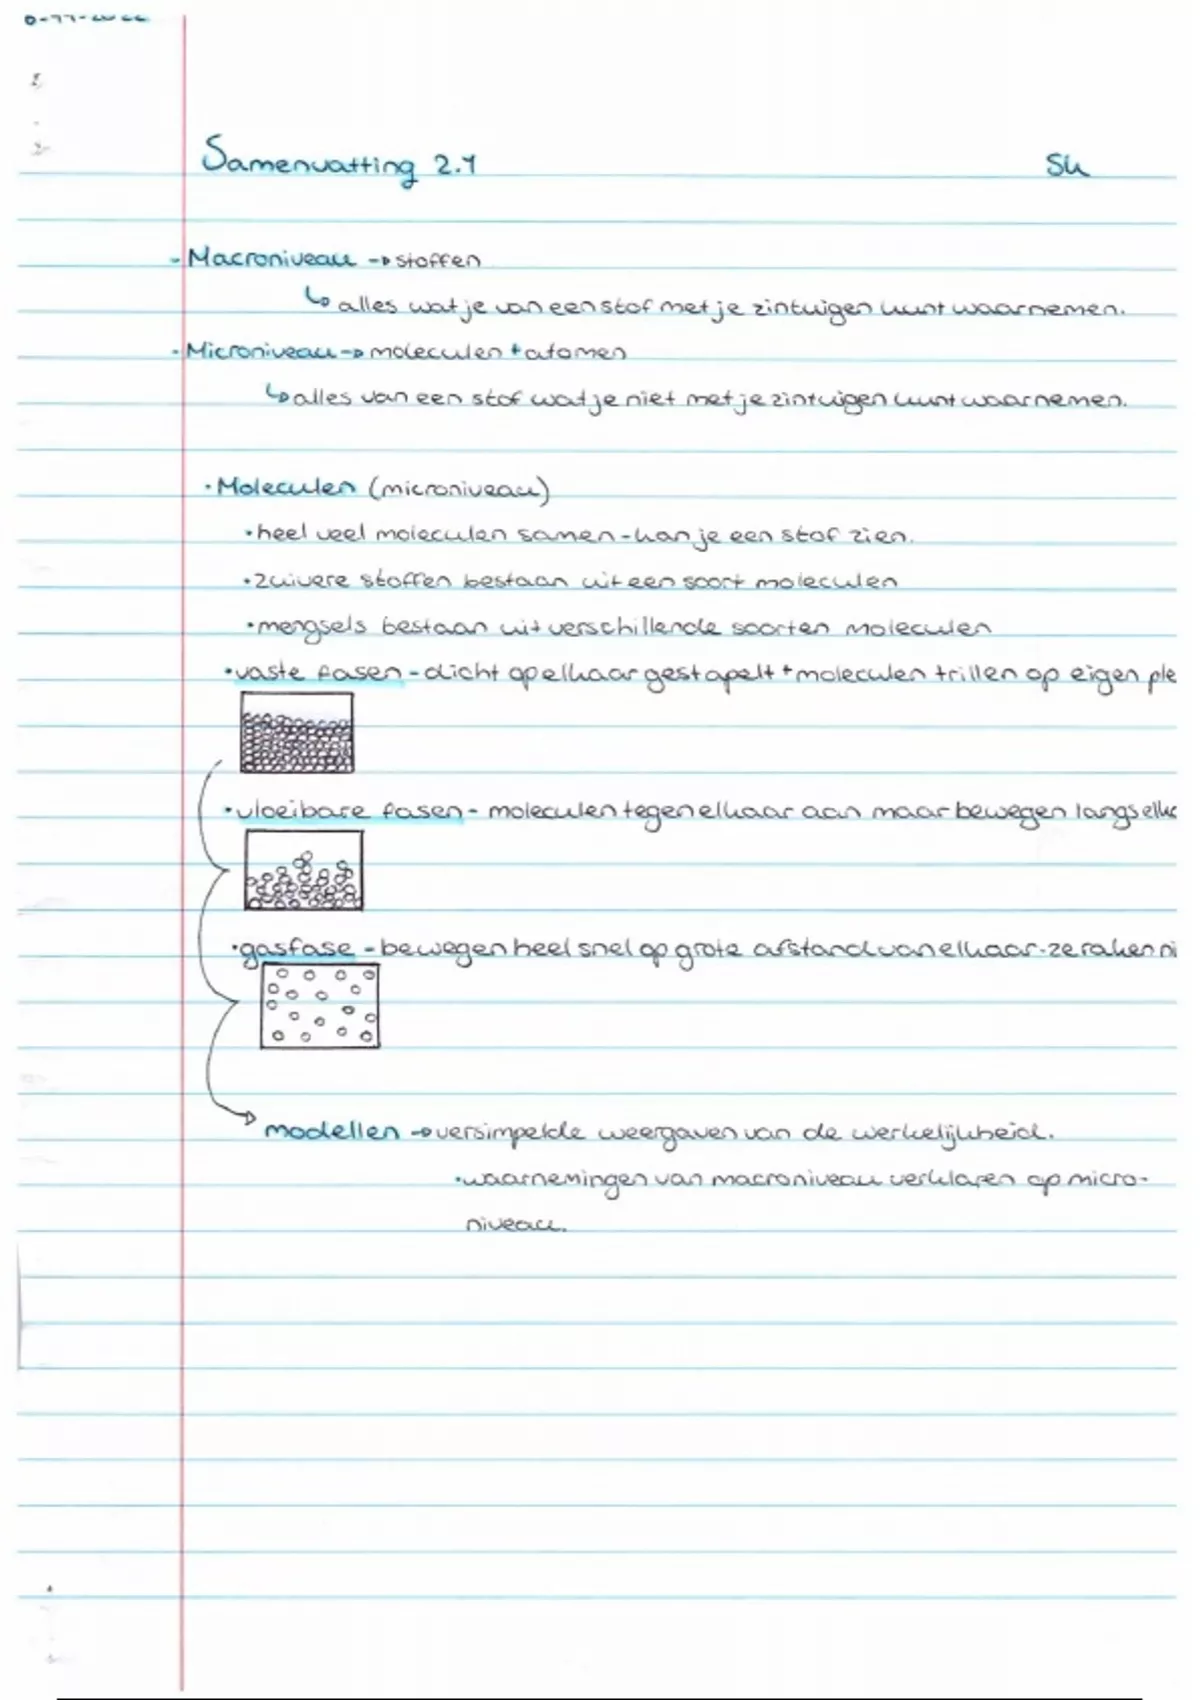 Samenvatting 2.1 Sk
- Macroniveau → stoffen
↳ alles wat je van een stof met je zintuigen kunt waarnemen.
- Microniveau → moleculen + atomen
↳ alles van een stof wat je niet met je zintuigen kunt waarnemen.
• Moleculen (microniveau)
• heel veel moleculen samen - kan je een stof zien.
• zuivere stoffen bestaan uit een soort moleculen
• mengsels bestaan uit verschillende soorten moleculen
• vaste fasen - dicht op elkaar gestapelt + moleculen trillen op eigen ple
• vloeibare fasen - moleculen tegen elkaar aan maar bewegen langs elka
• gasfase - bewegen heel snel op grote afstand van elkaar - ze raken ni
modellen → versimpelde weergaven van de werkelijkheid.
• waarnemingen van macroniveau verklaren op micro-
niveau.